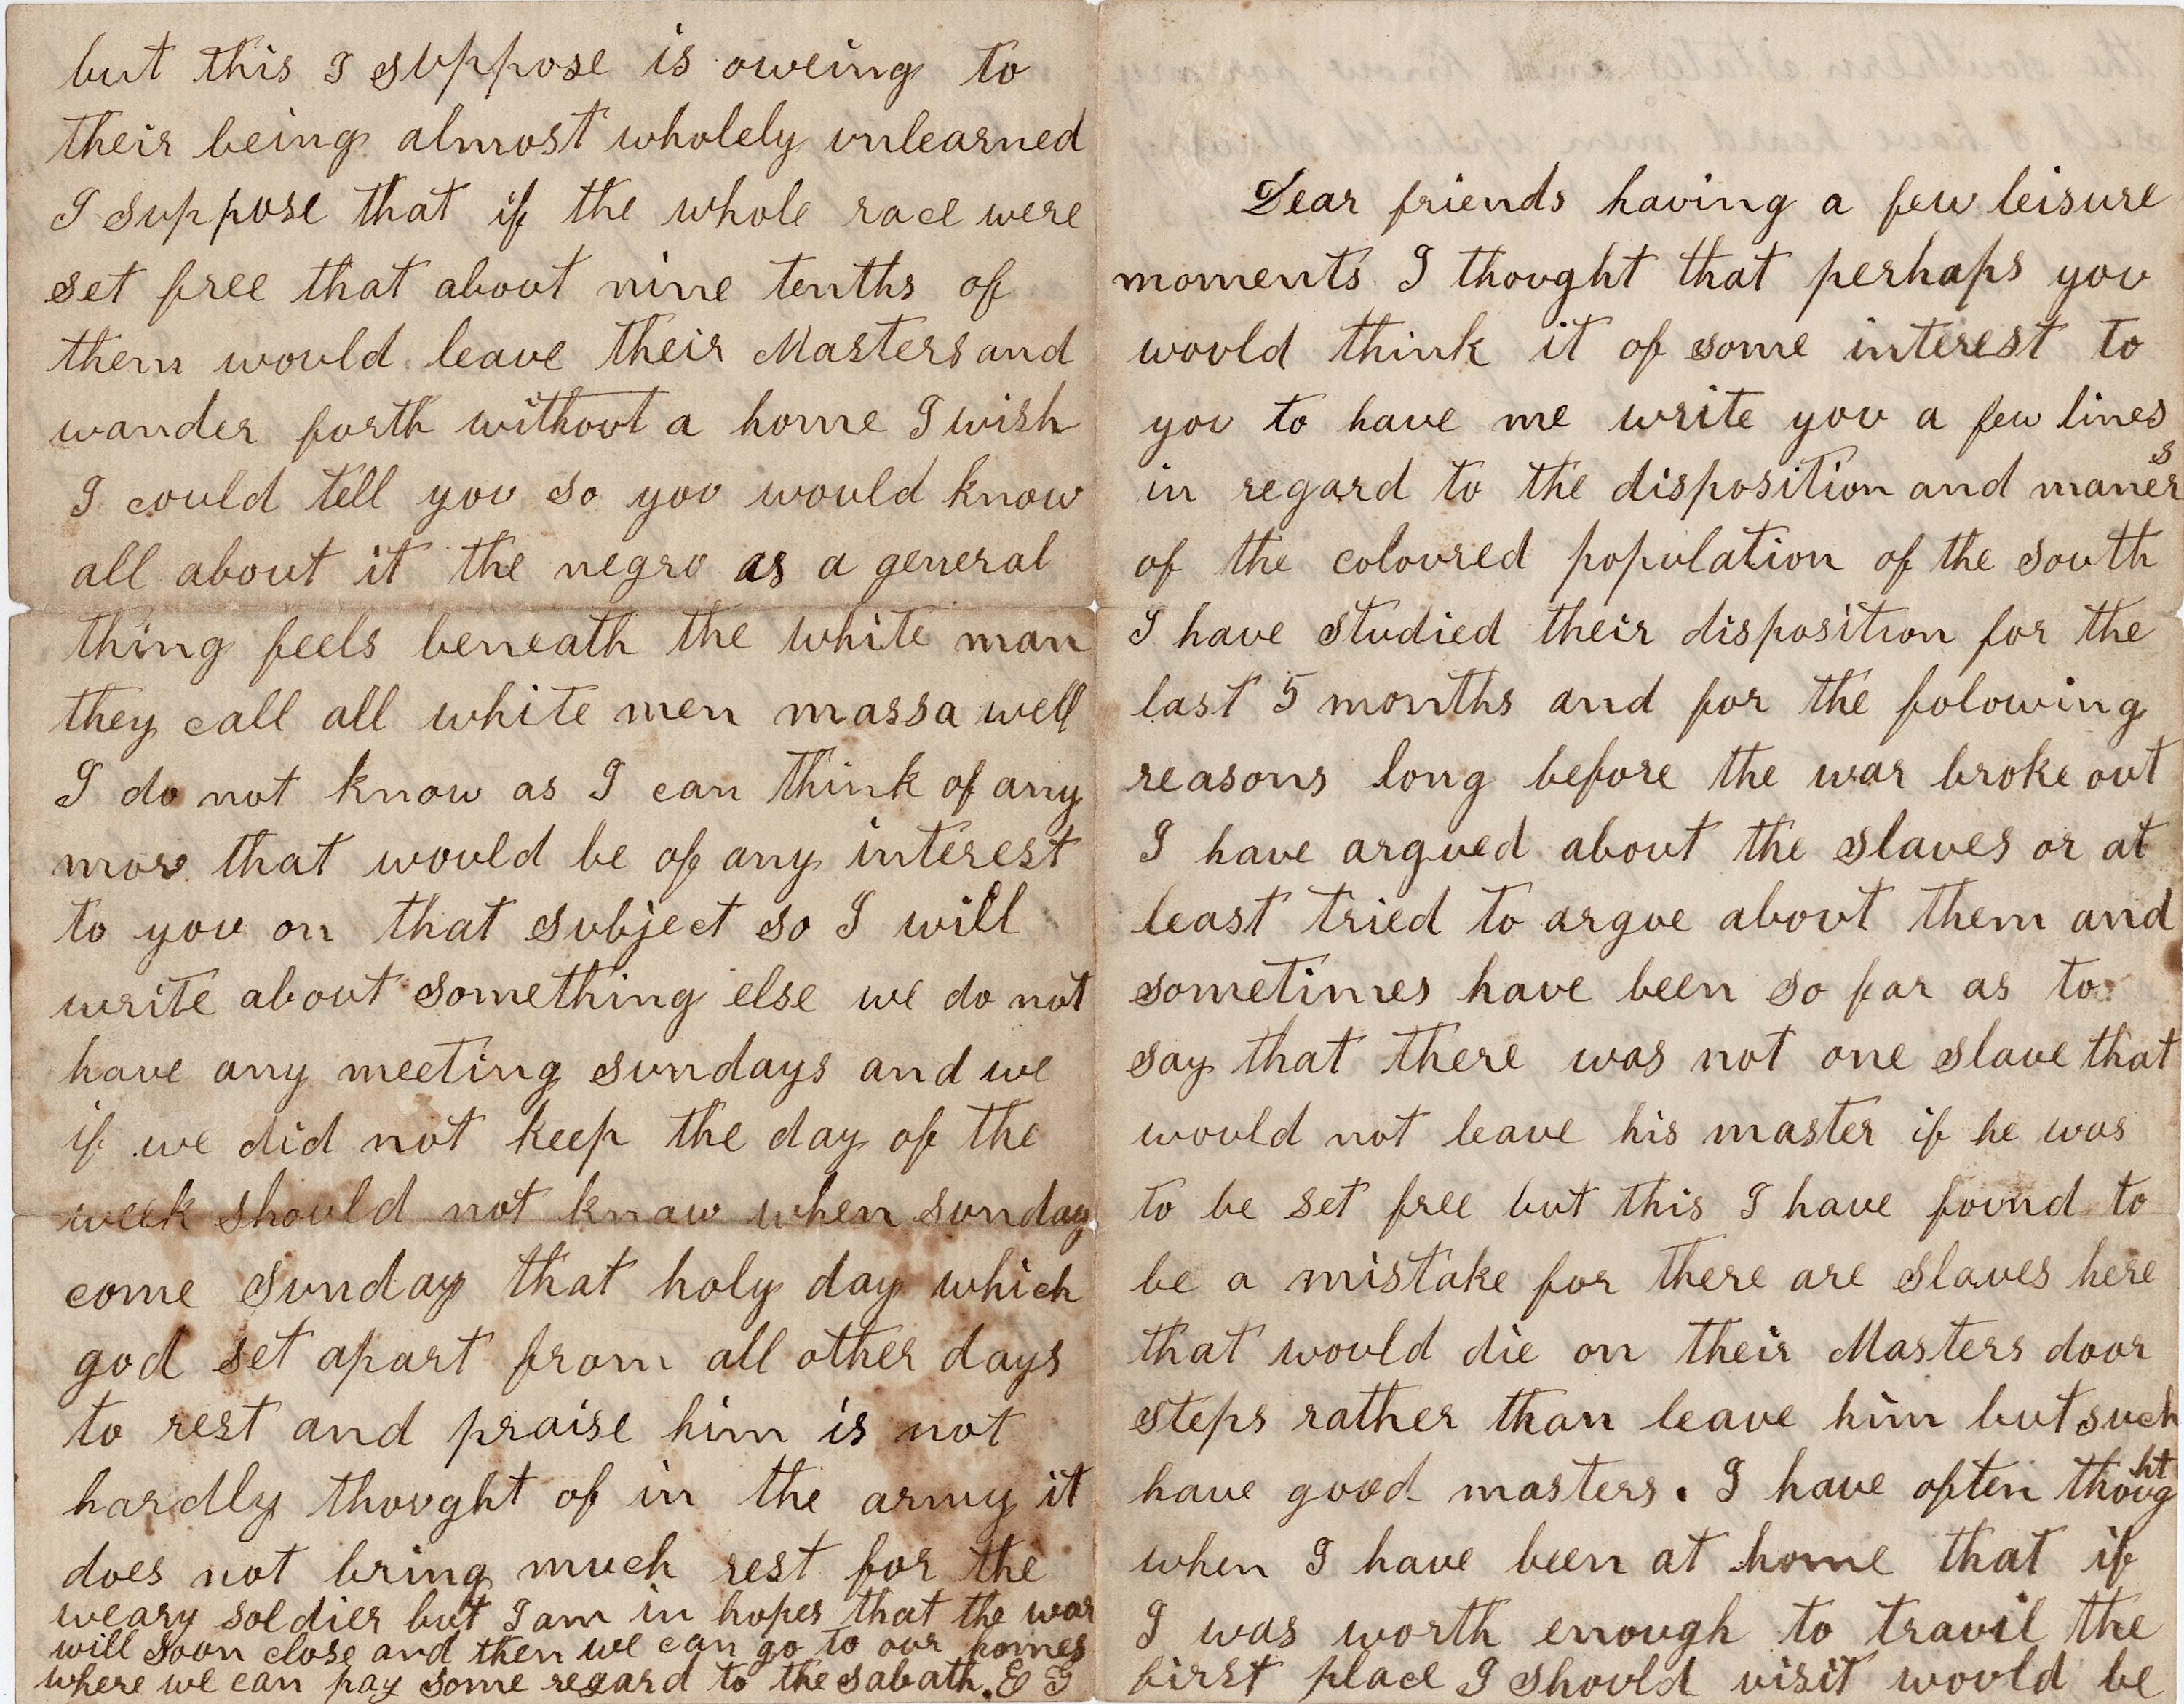 but this I suppose is oweing to
their being almost wholely unlearned
I suppose that if the whole race were
set free that about nine tenths of
them would leave their Masters and
wander forth without a home I wish
I could tell you so you would know
all about it the negro as a general
thing feels beneath the white man
they call all white men massa well
I do not know as I can think of any
more that would be of any interest
to you on that subject so I will
write about something else we do not
have any meeting sundays and we
if we did not keep the day of the
week should not know when sunday
come sunday that holy day which
god set apart from all other days
to rest and praise him is not
hardly thought of in the army it
does not bring much rest for the
weary soldier but I am in hopes that the war
will soon close and then we can go to our homes
where we can pay some regard to the sabath. E G
Dear friends having a few leisure
moments I thought that perhaps you
would think it of some interest to
you to have me write you a few lines
in regard to the disposition and maners
of the coloured population of the south
I have studied their disposition for the
last 5 months and for the folowing
reasons long before the war broke out
I have argued about the slaves or at
least tried to argue about them and
sometimes have been so far as to
say that there was not one slave that
would not leave his master if he was
to be set free but this I have found to
be a mistake for there are slaves here
that would die on their Masters door
steps rather than leave him but such
have good masters. I have often thought
when I have been at home that if
I was worth enough to travil the
first place I should visit would be